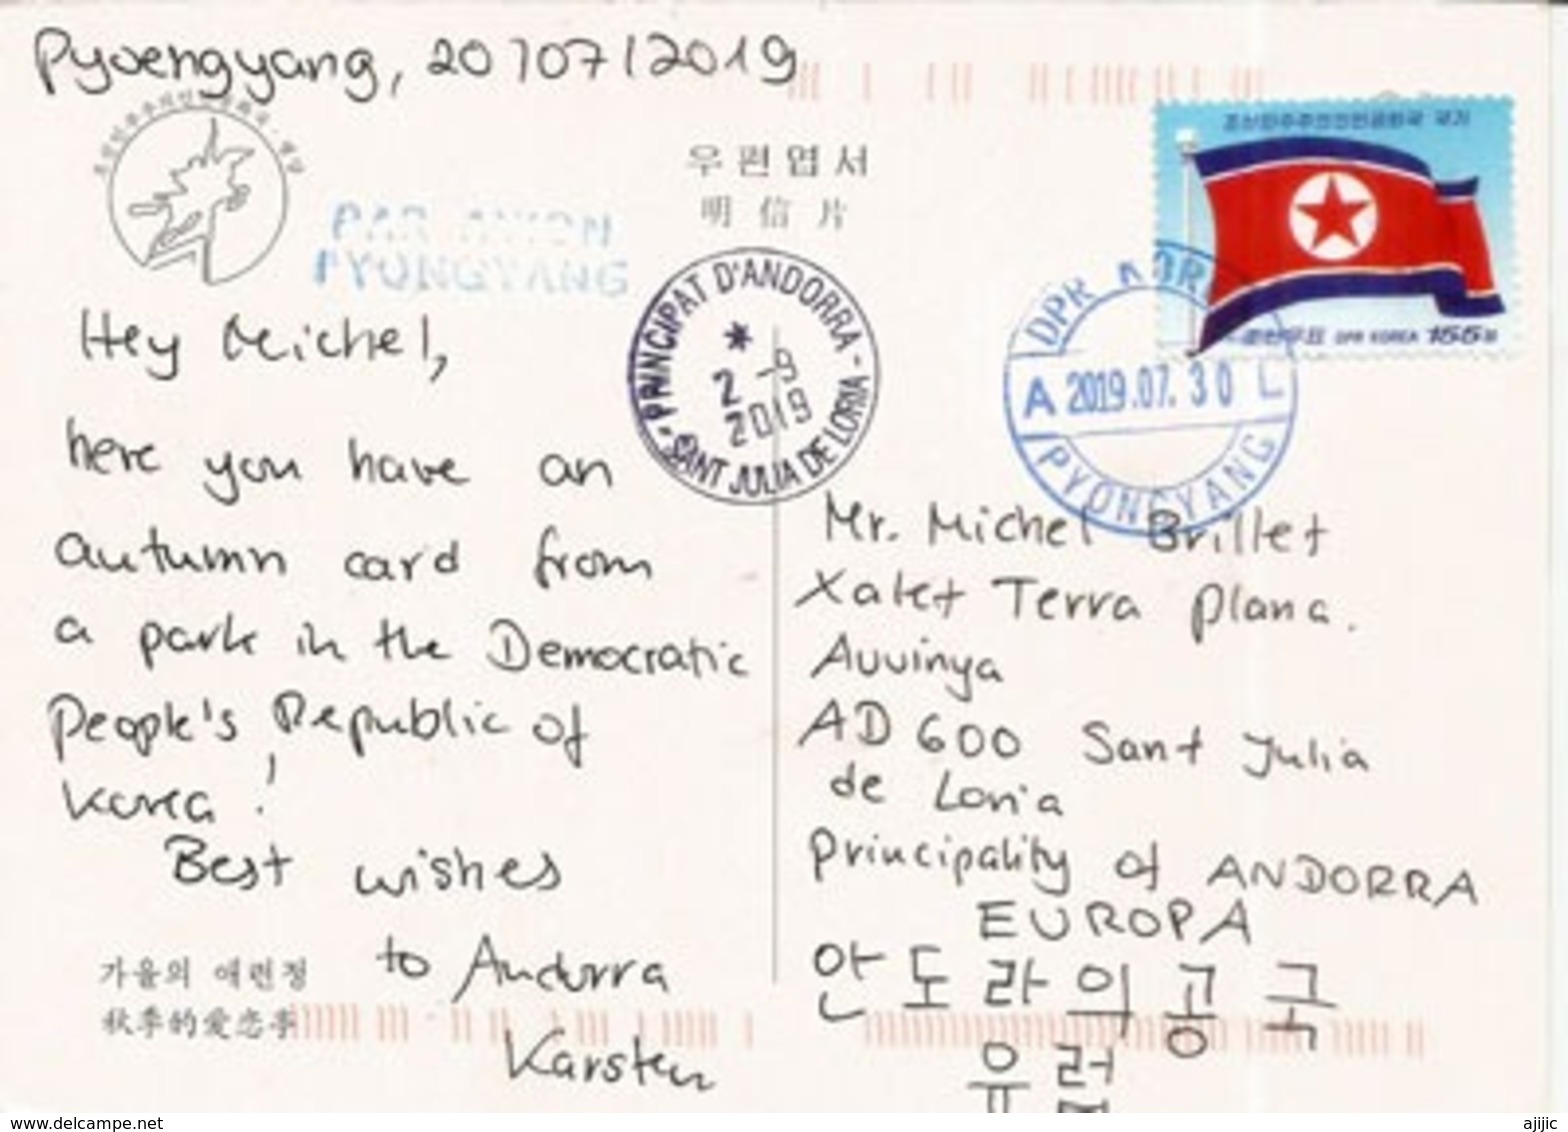 Pyoengyang, 20/07/2019
우편엽서
明信片
조선민주주의인민공화국 국기
조선우표 DPR KOREA 155원
PAR AVION
PYONGYANG
PRINCIPAT D'ANDORRA
* 2 -9
2019
SANT JULIA DE LORIA
DPR KOREA
A 2019.07.30 L
PYONGYANG
Hey Michel,
here you have an
autumn card from
a park in the Democratic
People's Republic of
Korea!
Best wishes
to Andorra
Karsten
가을의 애련정
秋季的爱恋亭
Mr. Michel Brillet
Xalet Terra Plana.
Auvinya
AD 600 Sant Julia
de Loria
Principality of ANDORRA
EUROPA
안도라의공국
유럽
www.delcampe.net
ajijic